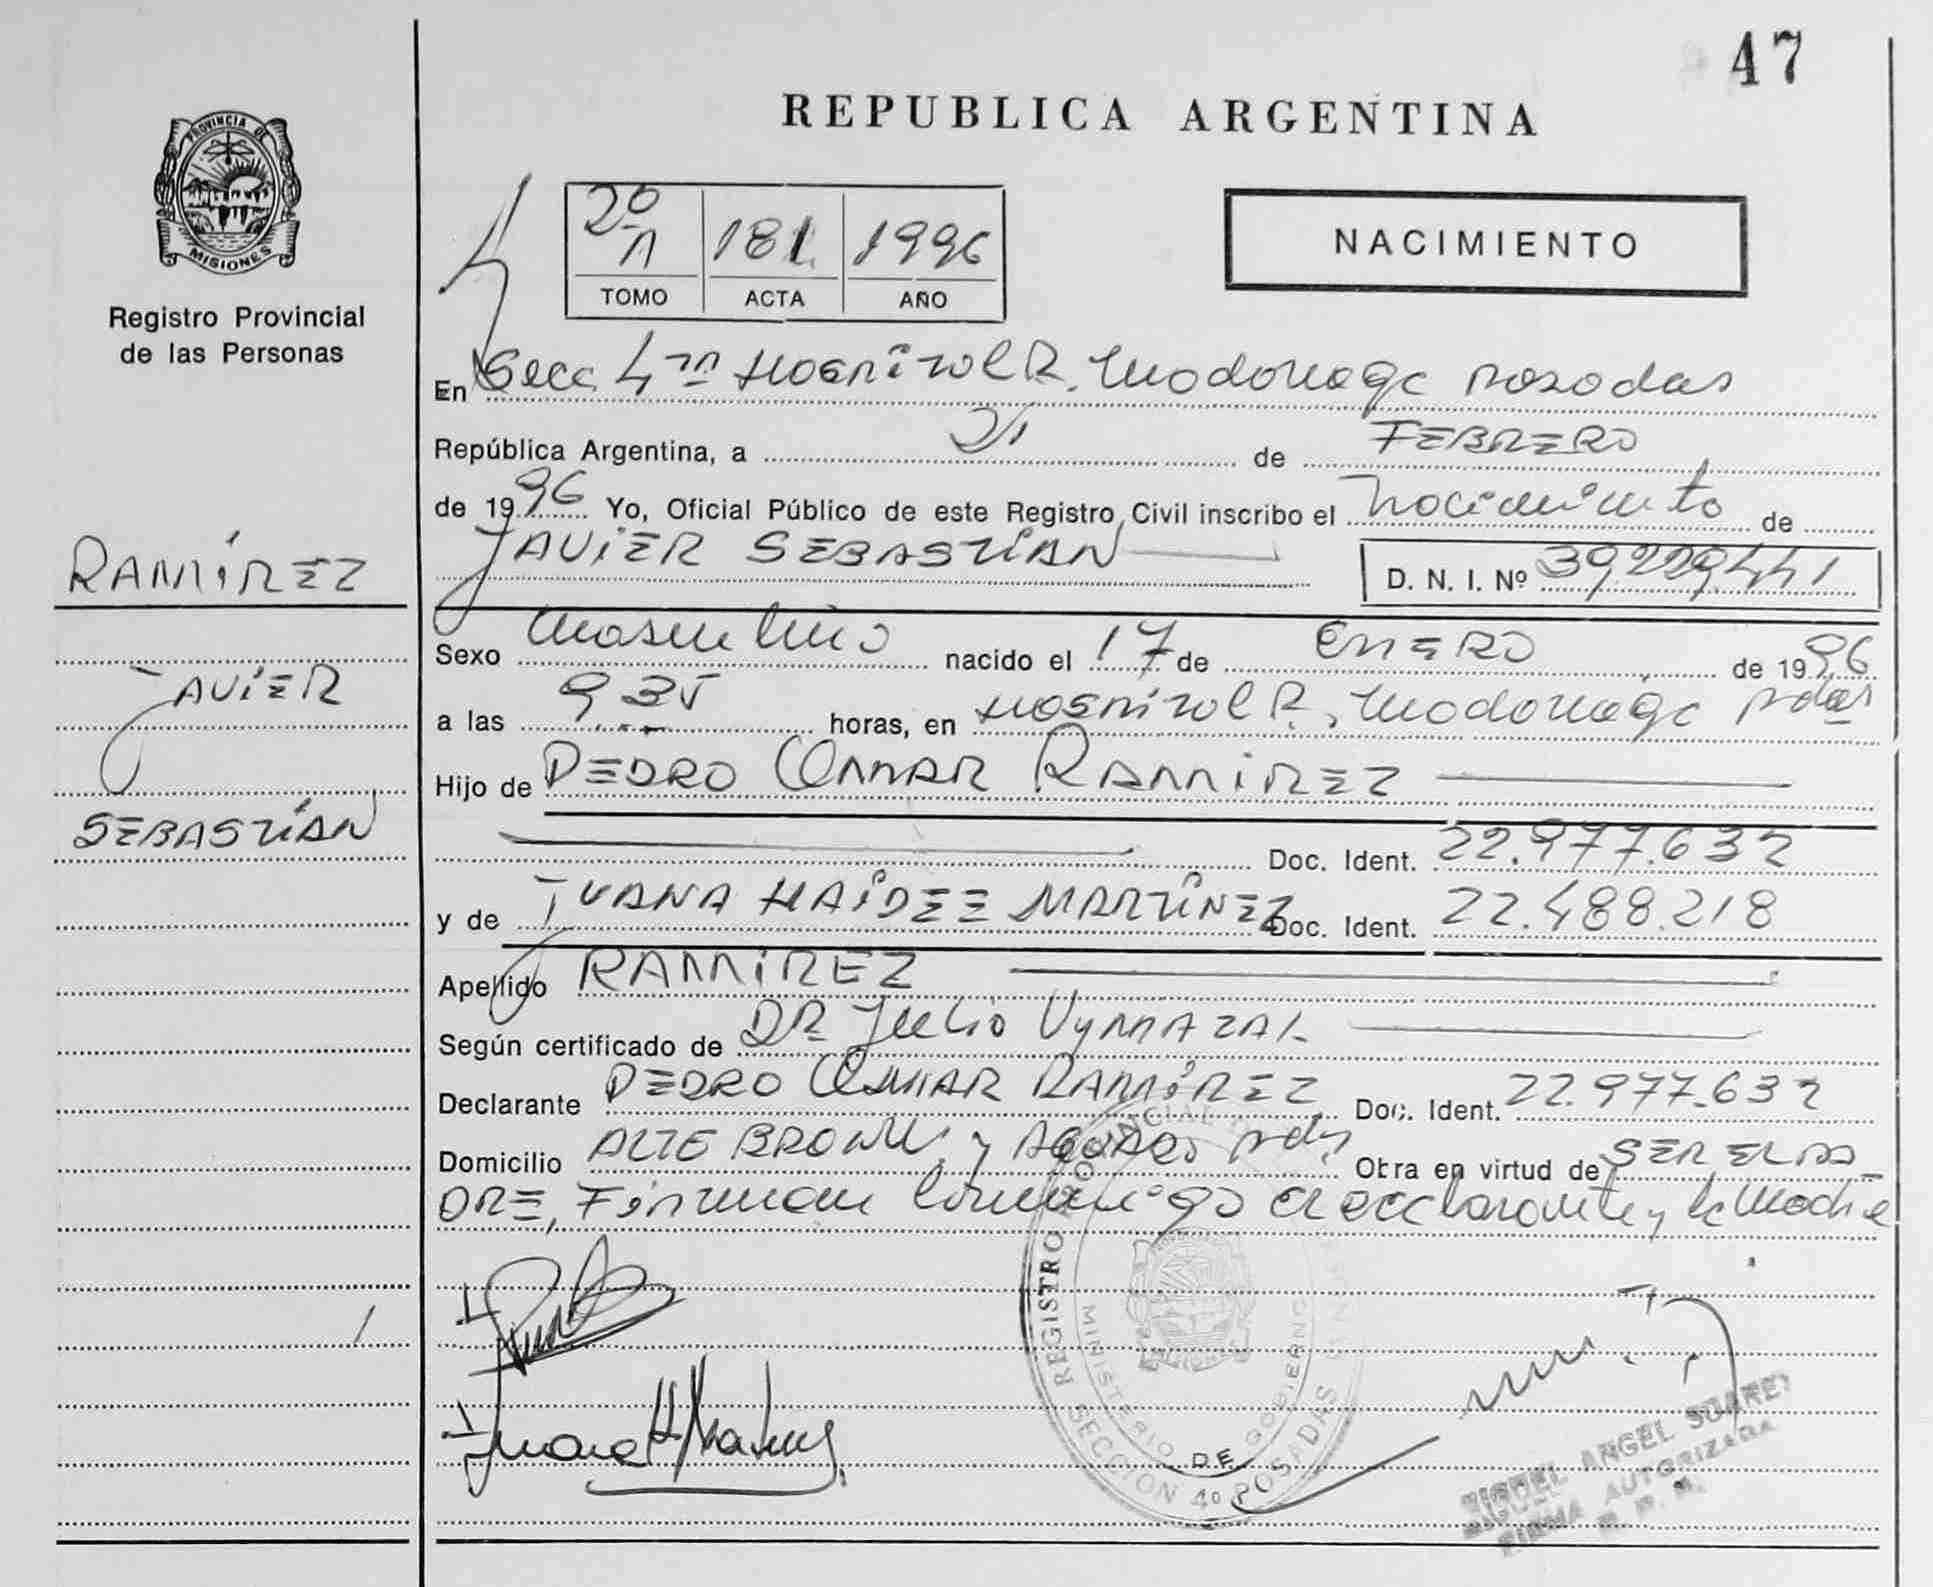 47
REPUBLICA ARGENTINA
PROVINCIA DE
MISIONES
Registro Provincial
de las Personas
2º A 181 1996
TOMO ACTA AÑO
NACIMIENTO
En Secc 4ta Hospital R. Madariaga Posadas
República Argentina, a 21 de FEBRERO
de 1996 Yo, Oficial Público de este Registro Civil inscribo el nacimiento de
JAVIER SEBASTIÁN D. N. I. Nº 39.229.441
RAMÍREZ
JAVIER
SEBASTIÁN
Sexo masculino nacido el 17 de ENERO de 1996
a las 9.35 horas, en Hospital R. Madariaga Pdas
Hijo de PEDRO OMAR RAMIREZ
Doc. Ident. 22.977.632
y de JUANA HAIDEE MARTÍNEZ Doc. Ident. 22.488.218
Apellido RAMIREZ
Según certificado de DR Julio VYMAZAL
Declarante PEDRO OMAR RAMÍREZ Doc. Ident. 22.977.632
Domicilio ALTE BROWN y Pdas Obra en virtud de SER EL PA-
DRE, Firman conmigo el declarante y la Madre
REGISTRO PROVINCIAL
MINISTERIO DE GOBIERNO
SECCION 4º POSADAS
Juana H Martinez
MIGUEL ANGEL SUAREZ
FIRMA AUTORIZADA
R. P. P.